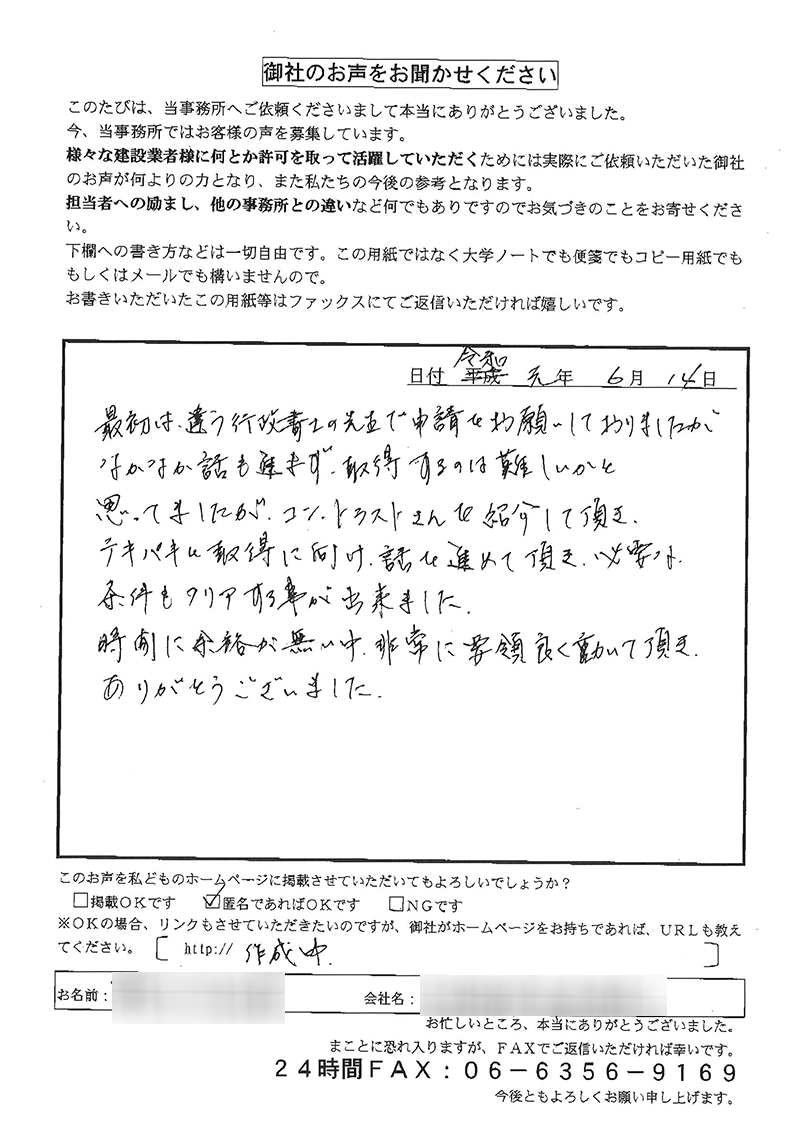 御社のお声をお聞かせください
このたびは、当事務所へご依頼くださいまして本当にありがとうございました。
今、当事務所ではお客様の声を募集しています。
様々な建設業者様に何とか許可を取って活躍していただくためには実際にご依頼いただいた御社
のお声が何よりの力となり、また私たちの今後の参考となります。
担当者への励まし、他の事務所との違いなど何でもありですのでお気づきのことをお寄せくださ
い。
下欄への書き方などは一切自由です。この用紙ではなく大学ノートでも便箋でもコピー用紙でも
もしくはメールでも構いませんので。
お書きいただいたこの用紙等はファックスにてご返信いただければ嬉しいです。
令和
日付 平成 元 年 6 月 14 日
最初は、違う行政書士の先生で申請をお願いしておりましたが
なかなか話も進まず、取得するのは難しいかと
思ってましたが、コントラストさんを紹介して頂き、
テキパキと取得に向け、話を進めて頂き、必要な
条件もクリアする事が出来ました。
時間に余裕が無い中、非常に要領良く動いて頂き、
ありがとうございました。
このお声を私どものホームページに掲載させていただいてもよろしいでしょうか？
□掲載ＯＫです ☑匿名であればＯＫです □ＮＧです
※ＯＫの場合、リンクもさせていただきたいのですが、御社がホームページをお持ちであれば、ＵＲＬも教え
てください。 [ http:// 作成中. ]
お名前： 会社名：
お忙しいところ、本当にありがとうございました。
まことに恐れ入りますが、ＦＡＸでご返信いただければ幸いです。
２４時間ＦＡＸ：０６－６３５６－９１６９
今後ともよろしくお願い申し上げます。